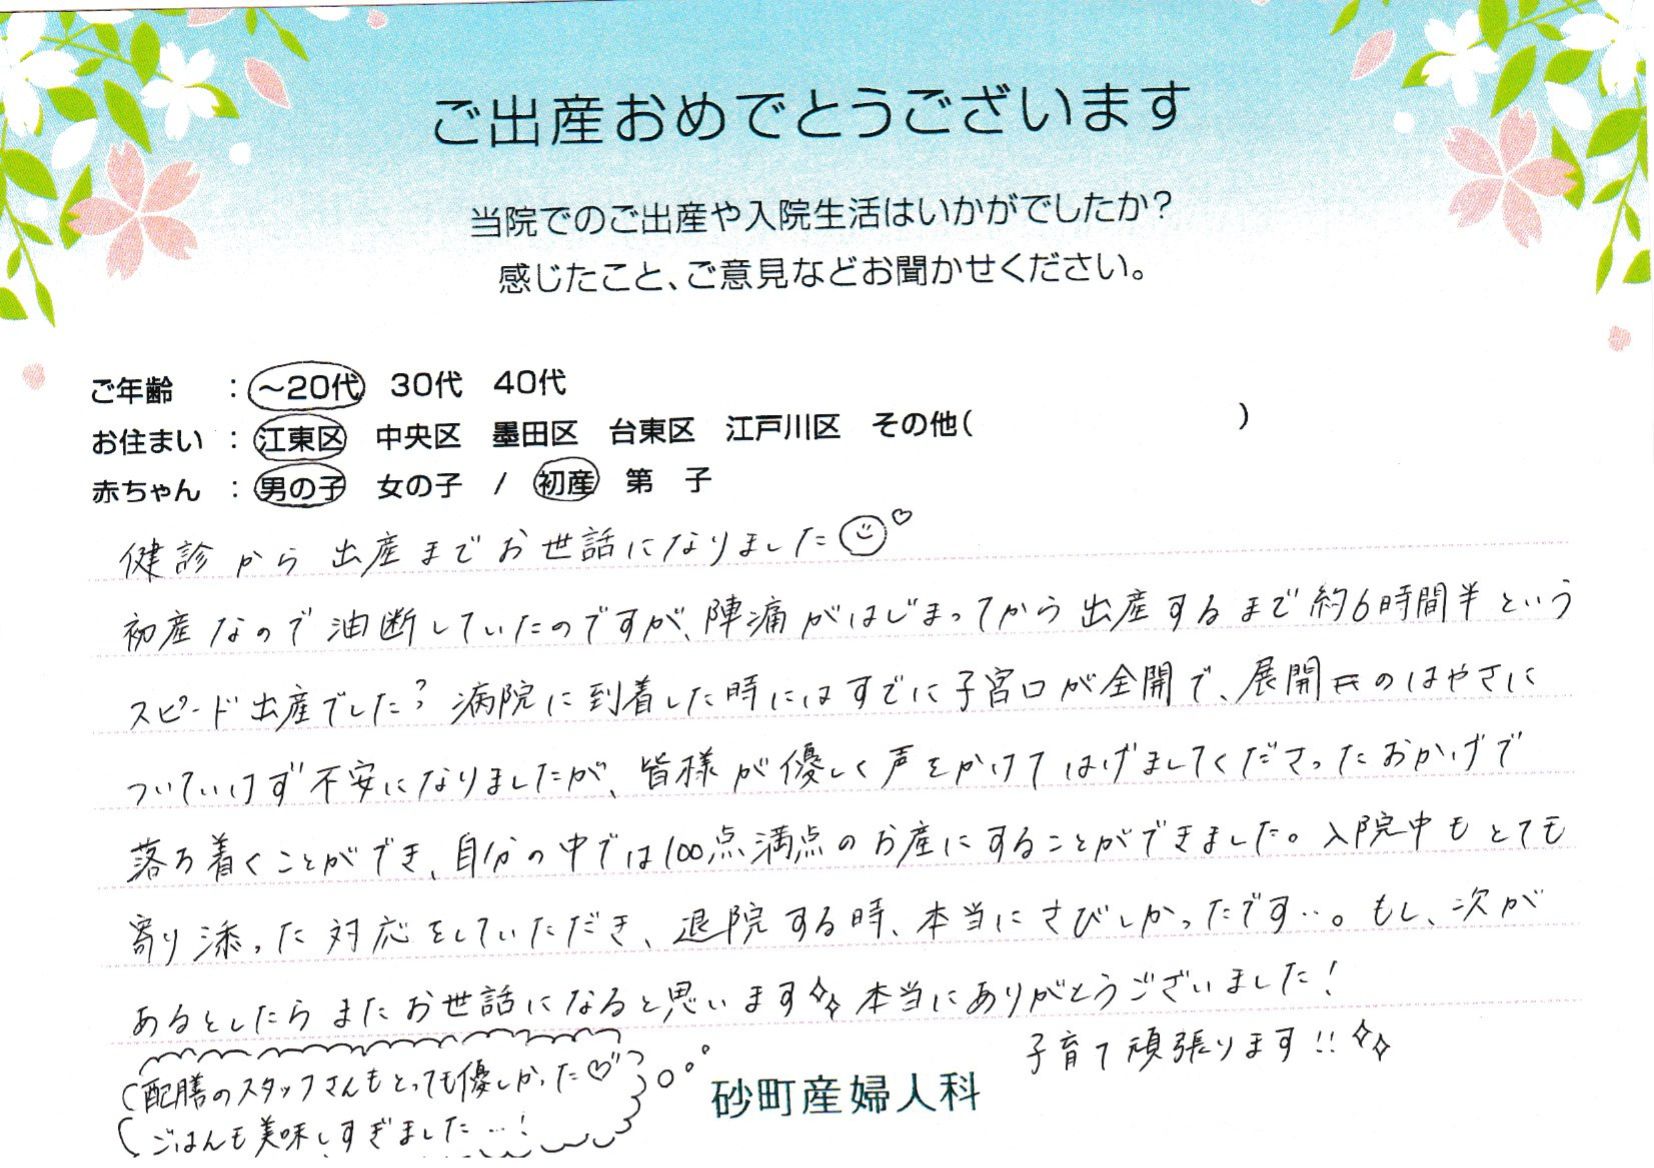 ご出産おめでとうございます
当院でのご出産や入院生活はいかがでしたか?
感じたこと、ご意見などお聞かせください。
ご年齢 : ~20代 30代 40代
お住まい : 江東区 中央区 墨田区 台東区 江戸川区 その他( )
赤ちゃん : 男の子 女の子 / 初産 第 子
健診から出産までお世話になりました
初産なので油断していたのですが、陣痛がはじまってから出産するまで約6時間半という
スピード出産でした? 病院に到着した時にはすでに子宮口が全開で、展開のはやさに
ついていけず不安になりましたが、皆様が優しく声をかけてはげましてくださったおかげで
落ち着くことができ、自分の中では100点満点のお産にすることができました。入院中もとても
寄り添った対応をしていただき、退院する時、本当にさびしかったです…。もし、次が
あるとしたらまたお世話になると思います 本当にありがとうございました!
子育て頑張ります!!
(配膳のスタッフさんもとっても優しかった♡
ごはんも美味しすぎました…!
砂町産婦人科